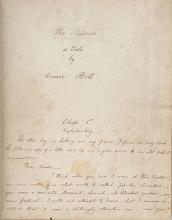 The Professor
a Tale
by
Currer Bell
Chap. 1st
Introductory
The other day, in looking over my papers, I found in my desk
the following copy of a letter sent by me a year since to an old school
acquaintance
Dear Charles,
I think when you and I were at Eton together,
we were neither of us what could be called popular characters
you were a sarcastic, observant, shrewd, cold-blooded creature
my own portrait I will not attempt to draw but I cannot
recollect that it was a strikingly attractive one